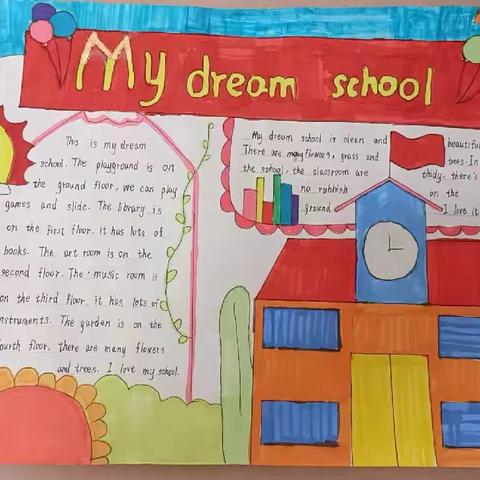 My dream school
This is my dream
school. The playground is on
the ground floor, we can play
games and slide. The library is
on the first floor, it has lots of
books. The art room is on the
second floor. The music room is
on the third floor, it has lots of
instruments. The garden is on the
fourth floor, there are many flowers
and trees. I love my school.
My dream school is clean and beautiful
There are many flowers, grass and trees. In
the school, the classroom are thidy, there's
no rubbish on the
ground I love it